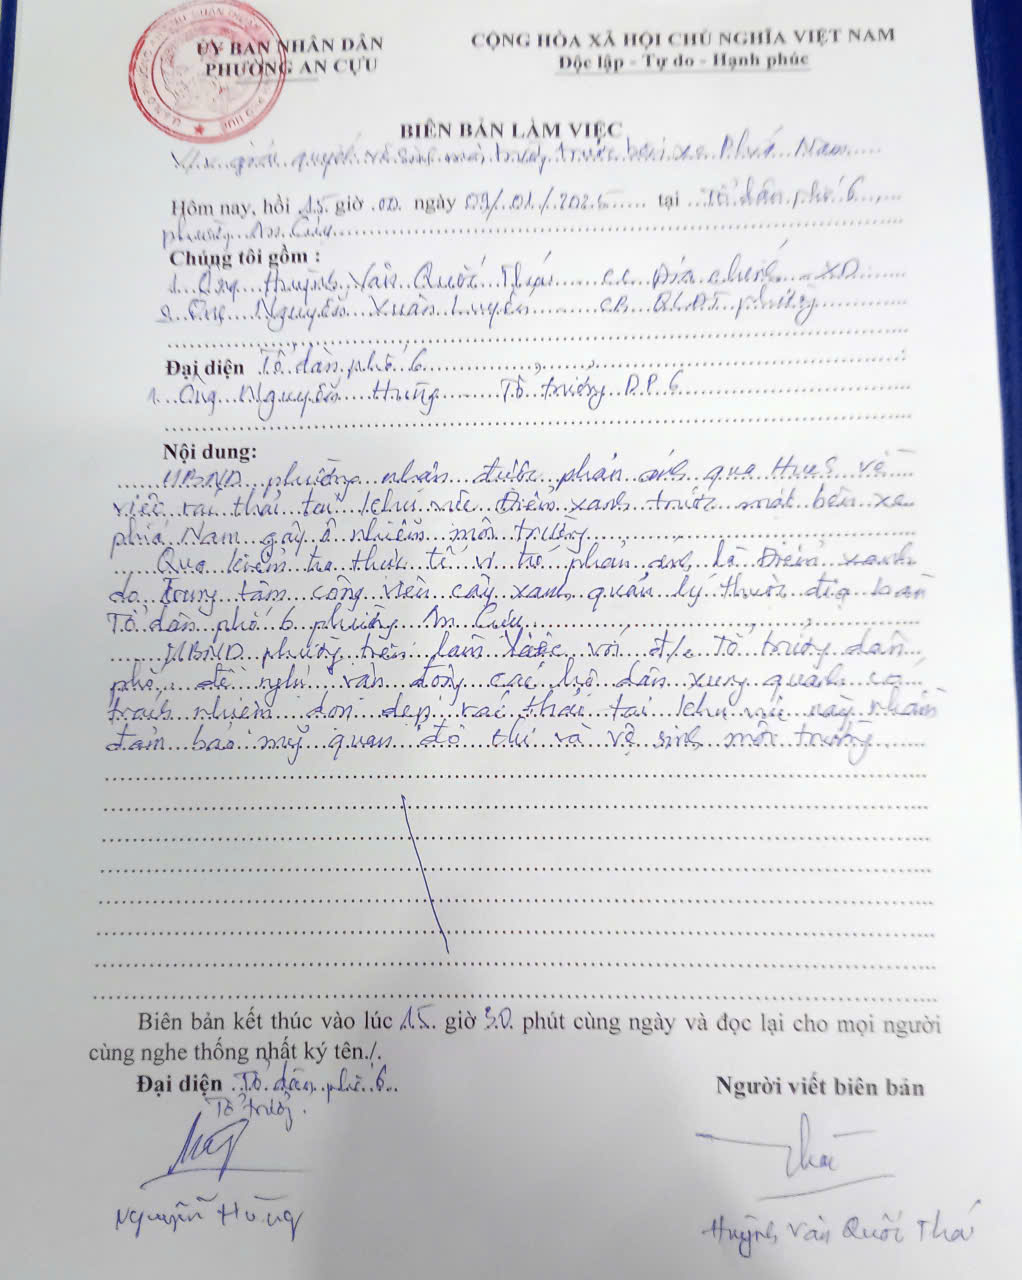 ỦY BAN NHÂN DÂN
PHƯỜNG AN CỰU
CỘNG HÒA XÃ HỘI CHỦ NGHĨA VIỆT NAM
Độc lập - Tự do - Hạnh phúc
BIÊN BẢN LÀM VIỆC
V/v giải quyết vệ sinh môi trường trước bến xe Phía Nam
Hôm nay, hồi 15 giờ 00 ngày 09/01/2025 tại Tổ dân phố 6,
phường An Cựu
Chúng tôi gồm :
1. Ông Huỳnh Văn Quốc Thái CC Địa chính - XD
2. Ông Nguyễn Xuân Luyến CB QLĐT phường
Đại diện Tổ dân phố 6
1. Ông Nguyễn Hùng Tổ trưởng D.P.6
Nội dung:
UBND phường nhận được phản ánh qua HueS về
việc rác thải tại khu vực Điểm xanh trước mặt bến xe
phía Nam gây ô nhiễm môi trường
Qua kiểm tra thực tế vị trí phản ánh là Điểm xanh
do Trung tâm công viên cây xanh quản lý thuộc địa bàn
Tổ dân phố 6 phường An Cựu
UBND phường làm việc với đ/c Tổ trưởng dân
phố, đề nghị vận động các hộ dân xung quanh có
trách nhiệm dọn dẹp rác thải tại khu vực này nhằm
đảm bảo mỹ quan đô thị và vệ sinh môi trường
Biên bản kết thúc vào lúc 15 giờ 30 phút cùng ngày và đọc lại cho mọi người
cùng nghe thống nhất ký tên./.
Đại diện Tổ dân phố 6
Tổ trưởng
Người viết biên bản
Nguyễn Hùng
Huỳnh Văn Quốc Thái